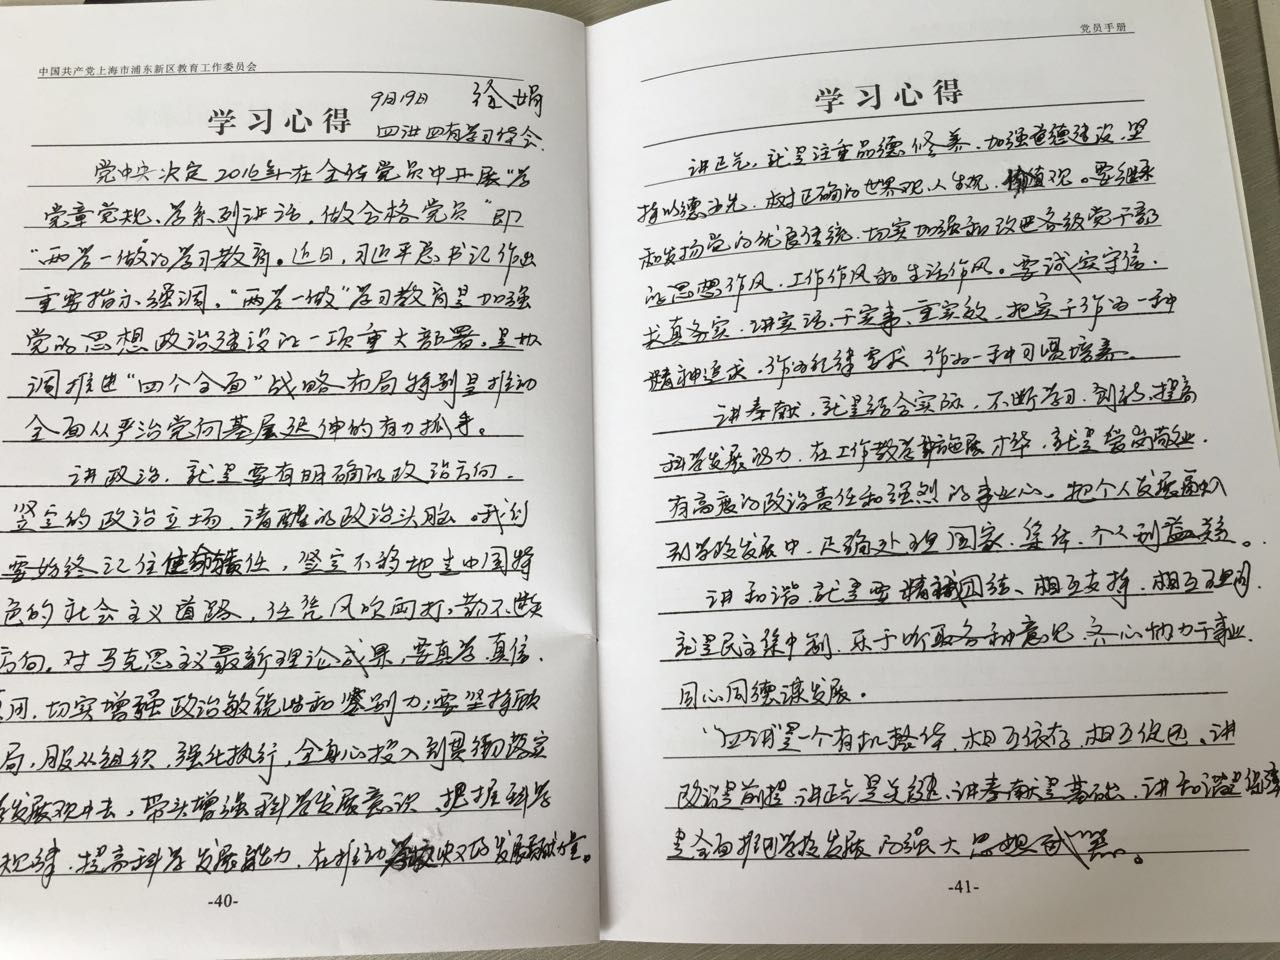 中国共产党上海市浦东新区教育工作委员会
学习心得 9月19日 徐娟
四讲四有学习体会.
党中央决定2016年在全体党员中开展“学
党章党规、学系列讲话,做合格党员”即
“两学一做的学习教育。近日,习近平总书记作出
重要指示强调,“两学一做”学习教育是加强
党的思想政治建设的一项重大部署,是协
调推进“四个全面”战略布局特别是推动
全面从严治党向基层延伸的有力抓手。
讲政治,就是要有明确的政治方向,
坚定的政治立场,清醒的政治头脑。我们
要始终记住使命责任,坚定不移地走中国特
色的社会主义道路,任凭风吹雨打,都不迷失
方向,对马克思主义最新理论成果,要真学、真信、
真用,切实增强政治敏锐性和鉴别力;要坚持顾
局,服从组织,强化执行,全身心投入到贯彻落实
发展观中去,带头增强科学发展意识,把握科学
规律,提高科学发展能力,在推动学校的发展献力量。
-40-
党员手册
学习心得
讲正气,就是注重品德修养,加强道德建设,坚
持以德为先,树正确的世界观、人生观、价值观。要继承
和发扬党的优良传统,切实加强和改进各级党干部
的思想作风、工作作风和生活作风。要诚实守信,
求真务实,讲实话、干实事、重实效,把实干作为一种
精神追求,作为纪律要求,作为一种习惯培养。
讲奉献,就是结合实际,不断学习、创新,提高
科学发展能力,在工作教学中施展才华,就是爱岗敬业,
有高度的政治责任和强烈的事业心。把个人发展融入
到学校发展中,正确处理国家、集体、个人利益关系。
讲和谐,就是要精诚团结、相互支持,相互理解,
就是民主集中制,乐于听取各种意见,齐心协力干事业,
同心同德谋发展。
“四讲”是一个有机整体,相互依存,相互促进,讲
政治是前提,讲正气是关键,讲奉献是基础,讲和谐是保障
是全面推进学校发展的强大思想武器。
-41-